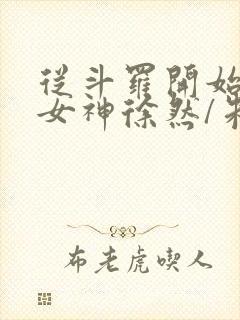 從斗羅開始
女神徐然/朱
布老虎喫人